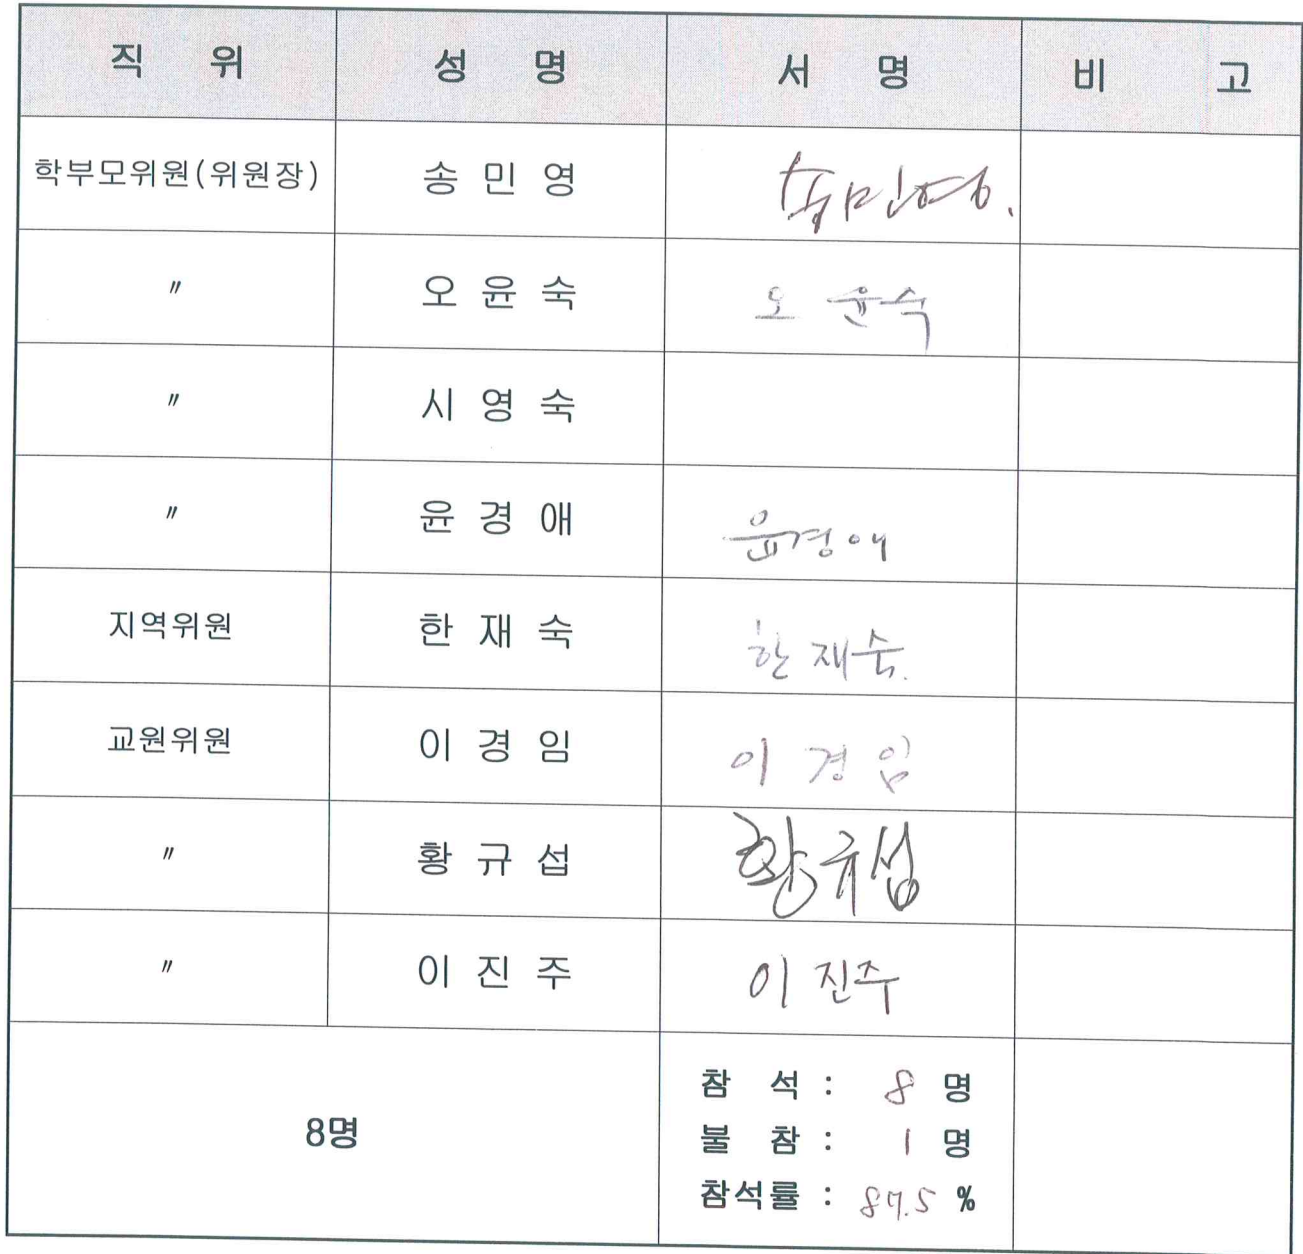 직 위 성 명 서 명 비 고
학부모위원(위원장) 송 민 영 송민영.
〃 오 윤 숙 오 윤숙
〃 시 영 숙
〃 윤 경 애 윤경애
지역위원 한 재 숙 한 재숙.
교원위원 이 경 임 이 경 임
〃 황 규 섭 황규섭
〃 이 진 주 이 진주
8명
참 석 : 8 명
불 참 : 1 명
참석률 : 87.5 %